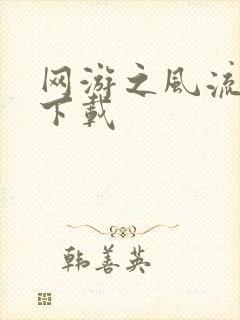 网游之风流
下载
韩善英